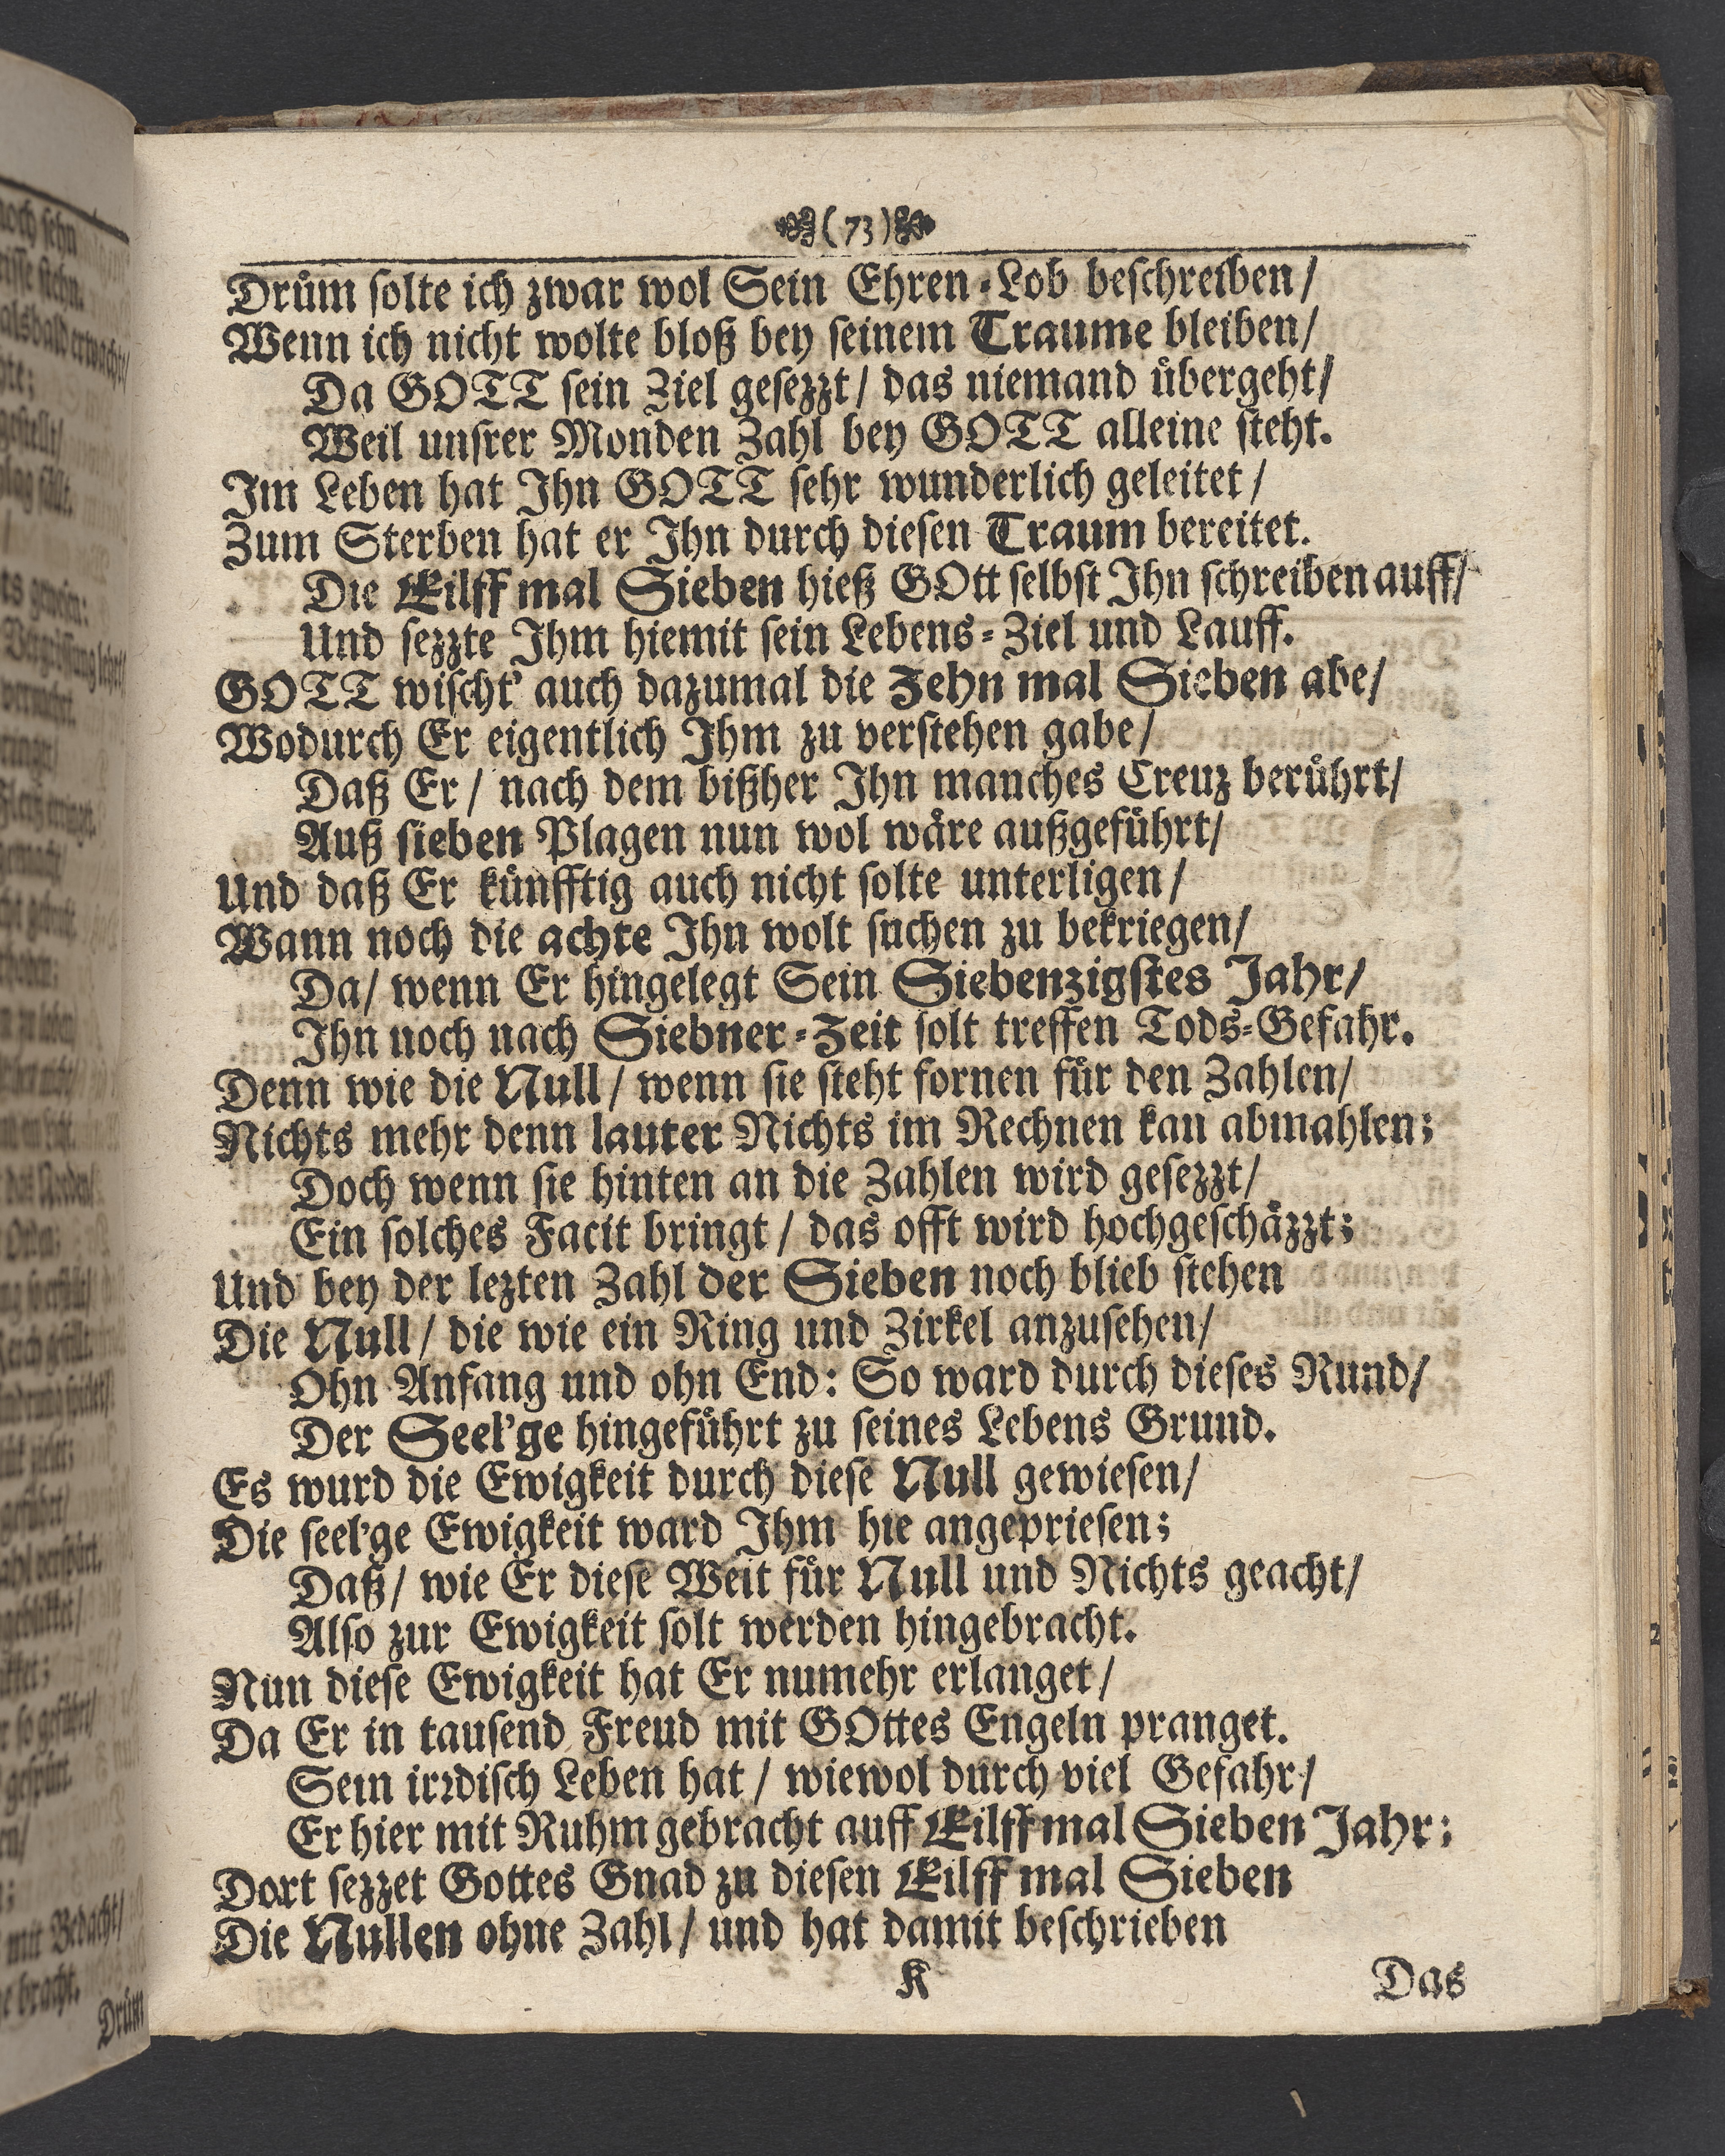 (73)
Drům solte ich zwar wol Sein Ehren-Lob beschreiben/
Wenn ich nicht wolte bloß bey seinem Traume bleiben/
Da GOTT sein Ziel gesezzt/ das niemand übergeht/
Weil unsrer Monden Zahl bey GOTT alleine steht.
Im Leben hat Ihn GOTT sehr wunderlich geleitet/
Zum Sterben hat er Ihn durch diesen Traum bereitet.
Die Eilff mal Sieben hieß GOtt selbst Ihn schreiben auff/
Und sezzte Ihm hiemit sein Lebens-Ziel und Lauff.
GOTT wischt' auch dazumal die Zehn mal Sieben abe/
Wodurch Er eigentlich Ihm zu verstehen gabe/
Daß Er/ nach dem bißher Ihn manches Creuz berührt/
Auß sieben Plagen nun wol wäre außgeführt/
Und daß Er künfftig auch nicht solte unterligen/
Wann noch die achte Ihn wolt suchen zu bekriegen/
Da/ wenn Er hingelegt Sein Siebenzigstes Jahr/
Ihn noch nach Siebner-Zeit solt treffen Tods-Gefahr.
Denn wie die Null/ wenn sie steht fornen für den Zahlen/
Nichts mehr denn lauter Nichts im Rechnen kan abmahlen;
Doch wenn sie hinten an die Zahlen wird gesezzt/
Ein solches Facit bringt/ das offt wird hochgeschäzzt;
Und bey der lezten Zahl der Sieben noch blieb stehen
Die Null/ die wie ein Ring und Zirkel anzusehen/
Ohn Anfang und ohn End: So ward durch dieses Rund/
Der Seel'ge hingeführt zu seines Lebens Grund.
Es wurd die Ewigkeit durch diese Null gewiesen/
Die seel'ge Ewigkeit ward Ihm hie angepriesen;
Daß/ wie Er diese Welt für Null und Nichts geacht/
Also zur Ewigkeit solt werden hingebracht.
Nun diese Ewigkeit hat Er numehr erlanget/
Da Er in tausend Freud mit GOttes Engeln pranget.
Sein irrdisch Leben hat/ wiewol durch viel Gefahr/
Er hier mit Ruhm gebracht auff Eilff mal Sieben Jahr:
Dort sezzet Gottes Gnad zu diesen Eilff mal Sieben
Die Nullen ohne Zahl/ und hat damit beschrieben
K
Das